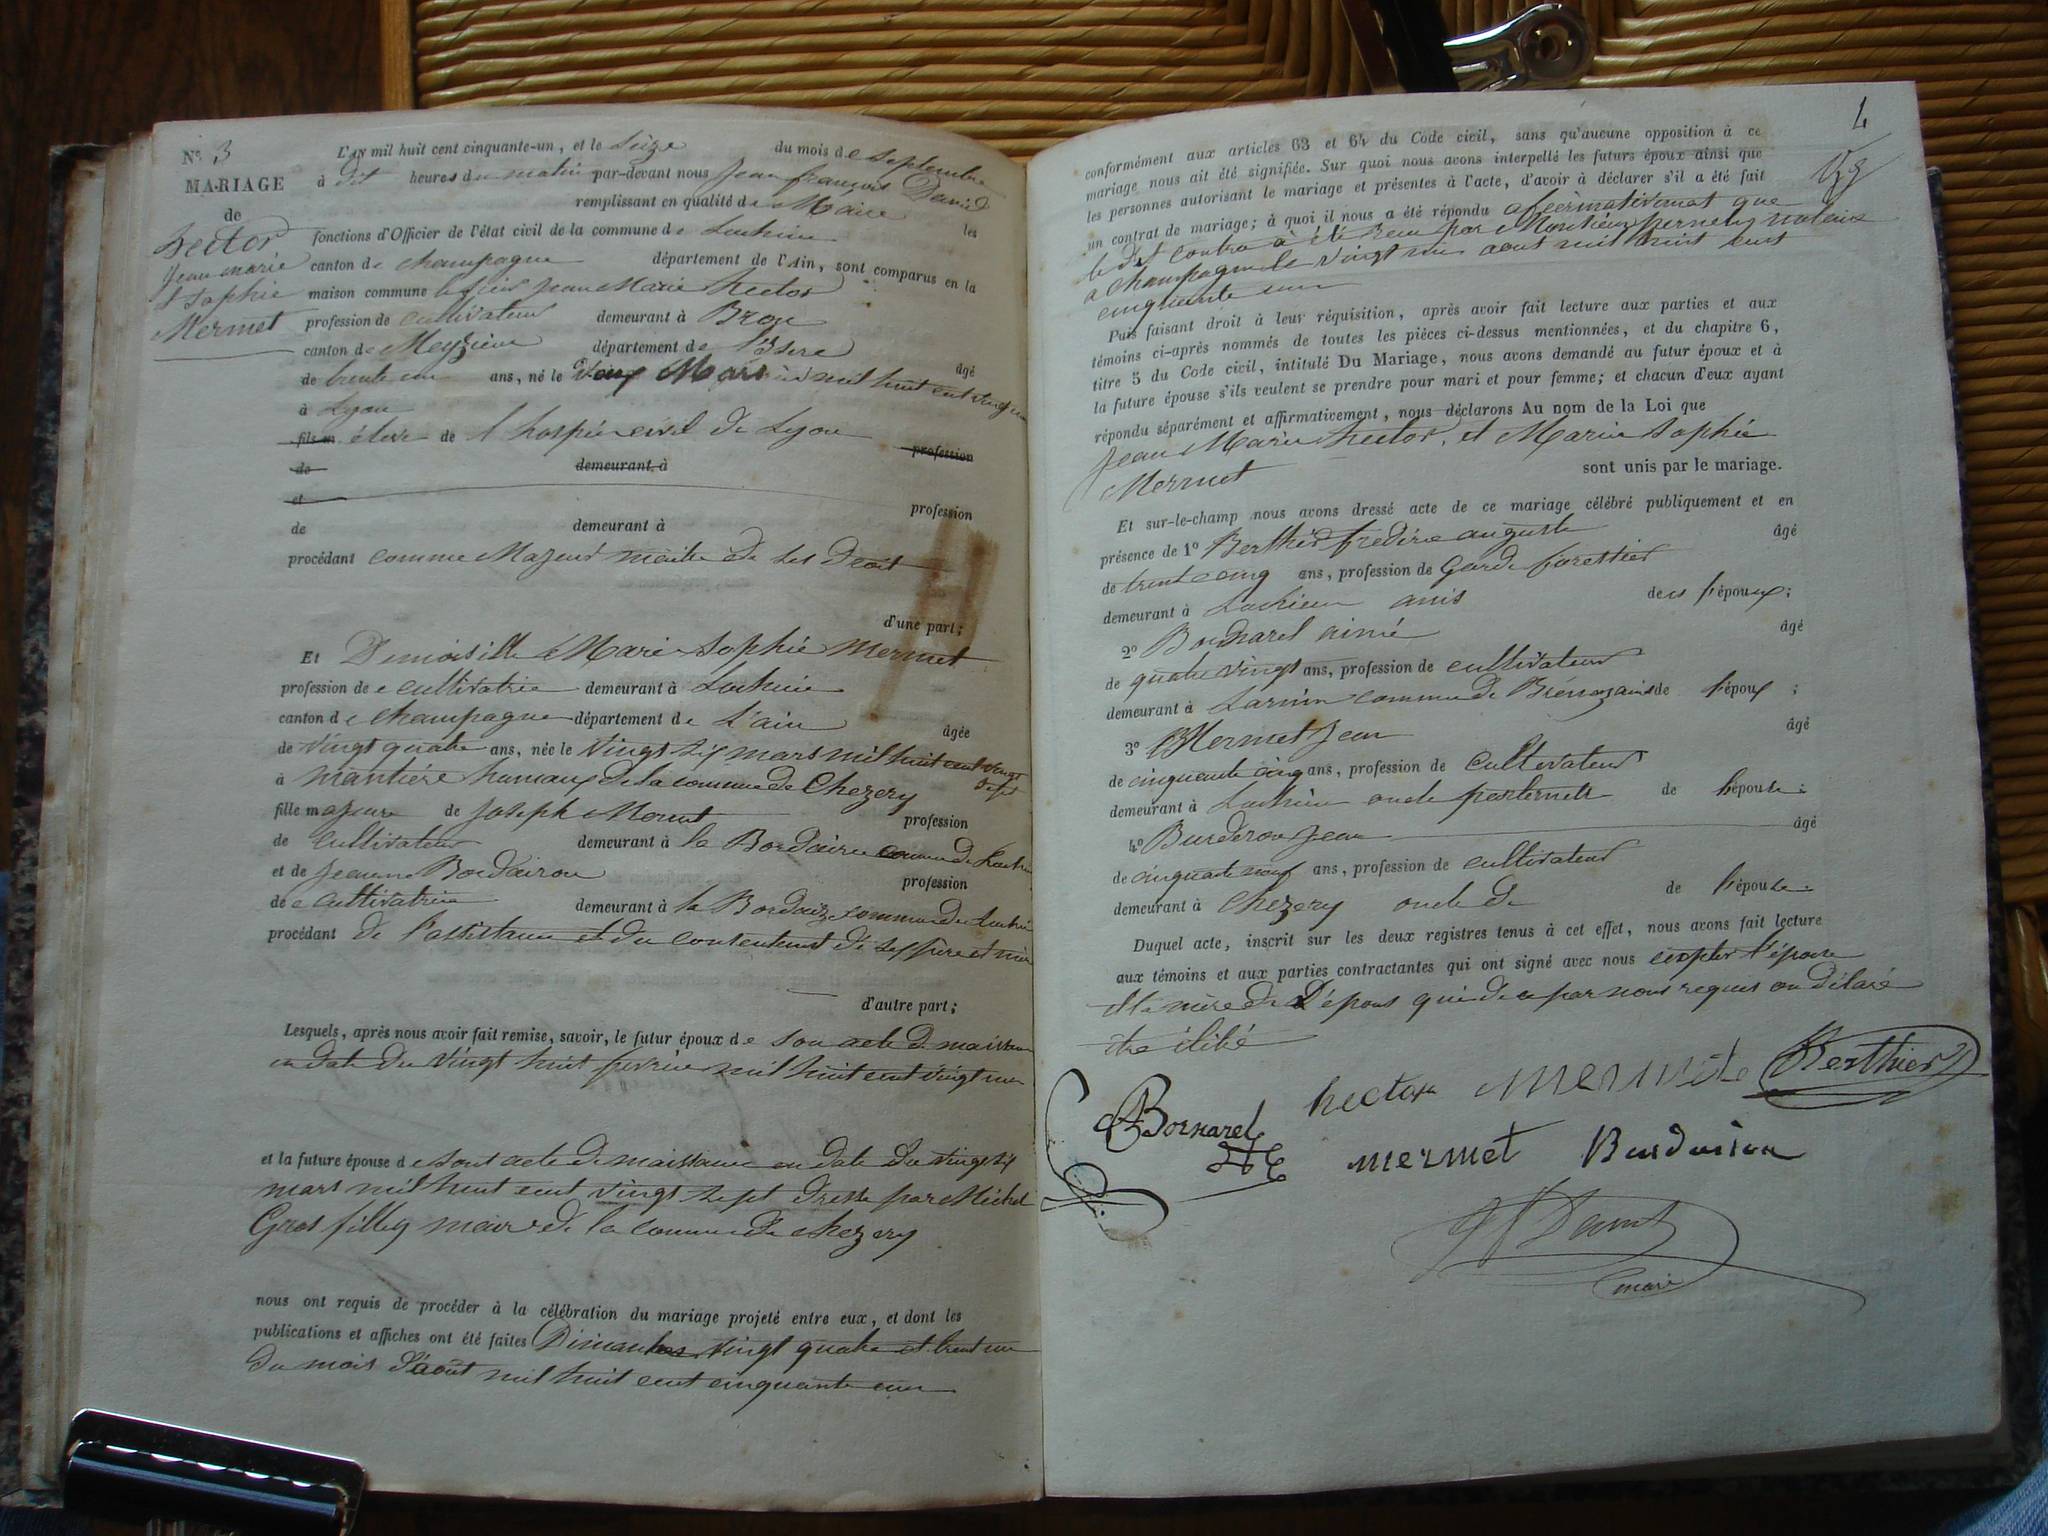 N° 3
MARIAGE
de
hector
Jean marie
& Sophie
Mermet
L'an mil huit cent cinquante-un, et le Seize du mois de Septembre
à dit heures du matin par-devant nous Jean françois David
remplissant en qualité de Maire les
fonctions d'Officier de l'état civil de la commune de
canton de champagne département de l'Ain, sont comparus en la
maison commune le sieur Jean Marie hector
profession de cultivateur demeurant à Bron
canton de Meyzieu département de l'Isere âgé
de trente un ans, né le Mars mil huit cent vingt un
à Lyon
fils élève de l'hospice civil de Lyon profession
de demeurant à
et profession
de demeurant à
procédant comme Majeur maitre de ses Droit
d'une part;
Et Demoiselle Marie Sophie Mermet
profession de cultivatrice demeurant à
canton de champagne département de L'ain âgée
de vingt quatre ans, née le vingt six mars mil huit cent vingt sept
à hameaux de la commune de Chezery
fille majeure de Joseph Mermet profession
de cultivateur demeurant à la commune de
et de Jeanne profession
de cultivatrice demeurant à la commune de
procédant de l'assistance et du consentement de ses père et mère
d'autre part;
Lesquels, après nous avoir fait remise, savoir, le futur époux de son acte de naissance
en date du vingt huit fevrier mil huit cent vingt un
et la future épouse de sont acte de naissance en date du vingt six
mars mil huit cent vingt sept dressé par Michel
Gros fillex maire de la commune de chezery
nous ont requis de procéder à la célébration du mariage projeté entre eux, et dont les
publications et affiches ont été faites Dimanches vingt quatre et trent un
du mois d'août mil huit cent cinquante un
4
conformément aux articles 63 et 64 du Code civil, sans qu'aucune opposition à ce
mariage nous ait été signifiée. Sur quoi nous avons interpellé les futurs époux ainsi que
les personnes autorisant le mariage et présentes à l'acte, d'avoir à déclarer s'il a été fait
un contrat de mariage; à quoi il nous a été répondu que
le dit contra à été Recu par Monsieur notaire
a champagne le vingt un aout mil huit cent
cinquante un
Puis faisant droit à leur réquisition, après avoir fait lecture aux parties et aux
témoins ci-après nommés de toutes les pièces ci-dessus mentionnées, et du chapitre 6,
titre 5 du Code civil, intitulé Du Mariage, nous avons demandé au futur époux et à
la future épouse s'ils veulent se prendre pour mari et pour femme; et chacun d'eux ayant
répondu séparément et affirmativement, nous déclarons Au nom de la Loi que
Jean Marie hector, et Marie Sophie
Mermet sont unis par le mariage.
Et sur-le-champ nous avons dressé acte de ce mariage célébré publiquement et en
présence de 1° Berthier auguste âgé
de trente cinq ans, profession de Garde forestier
demeurant à amis des l'époux;
2° Bornarel aimé âgé
de quatre vingt ans, profession de cultivateur
demeurant à commune de de l'époux;
3° Mermet Jean âgé
de cinquante cinq ans, profession de cultivateur
demeurant à oncle de l'épouse;
4° Jean âgé
de cinquante neuf ans, profession de cultivateur
demeurant à Chezery oncle de de l'épouse
Duquel acte, inscrit sur les deux registres tenus à cet effet, nous avons fait lecture
aux témoins et aux parties contractantes qui ont signé avec nous l'épouse
et la mère de L'épouse qui de ce par nous requis on déclaré
Bornarel
hector Mermet Berthier
mermet
J f David
maire